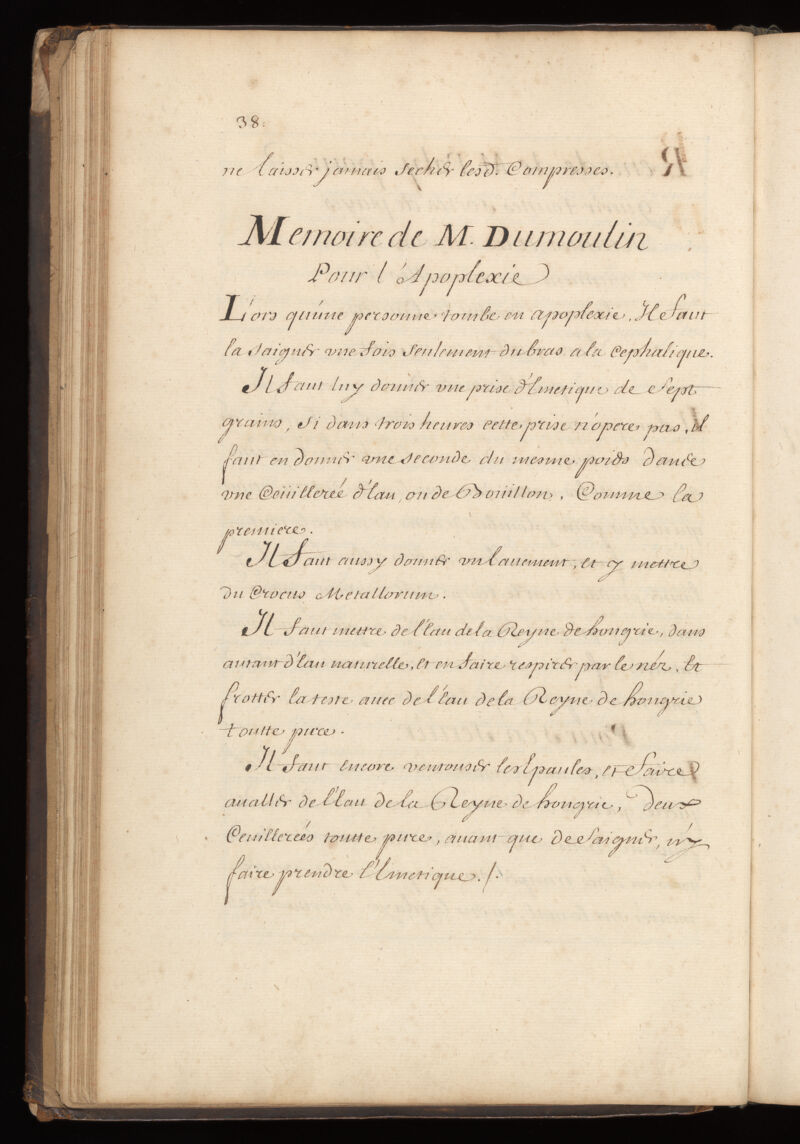 38.
ne laisser jamais secher lesd. Compresses.
Memoire de M. Dumoulin
Pour l'Apoplexie
Lors quúne personne tombe en apoplexie, Il faut
la saigner vne fois seulement du bras a la Cephalique.
Il faut luy donner vne prise d'Emetique de Sept
grains, Si dans trois heures cette prise n'opere pas, il
faut en donner vne seconde du mesme poids dans
vne Ceüilleréé d'Eau, ou de Boüillon, Comme la
premiere.
Il faut aussy donner vn lauement, et y mettre
du Crocus Metallorum.
Il faut mettre de l'Eau de la Reyne de hongrie, dans
autant d'Eau naturelle, Et en faire respirer par le néz, Et
frotter la teste auec de l'Eau de la Reyne de hongrie
toutte pure.
Il faut Encore ventouser les Epaules, et faire
aualler de l'Eau de la Reyne de hongrie, deux
Ceuillereés toutte pure, auant que de saigner, n'y
faire prendre l'Emetique. /.